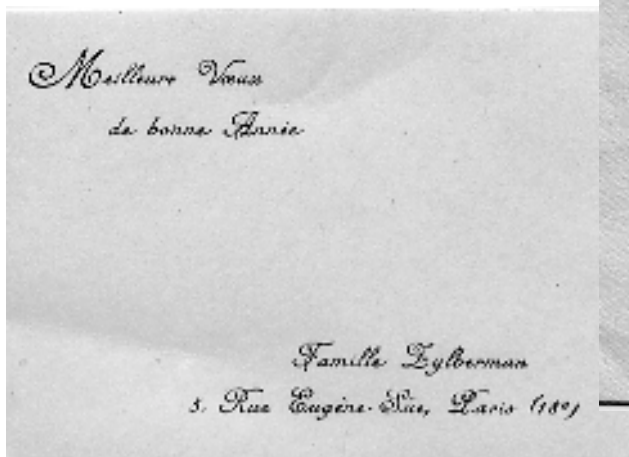 Meilleure Vœux
de bonne Année
Famille Zylberman
5. Rue Eugène-Süe, Paris (18e)